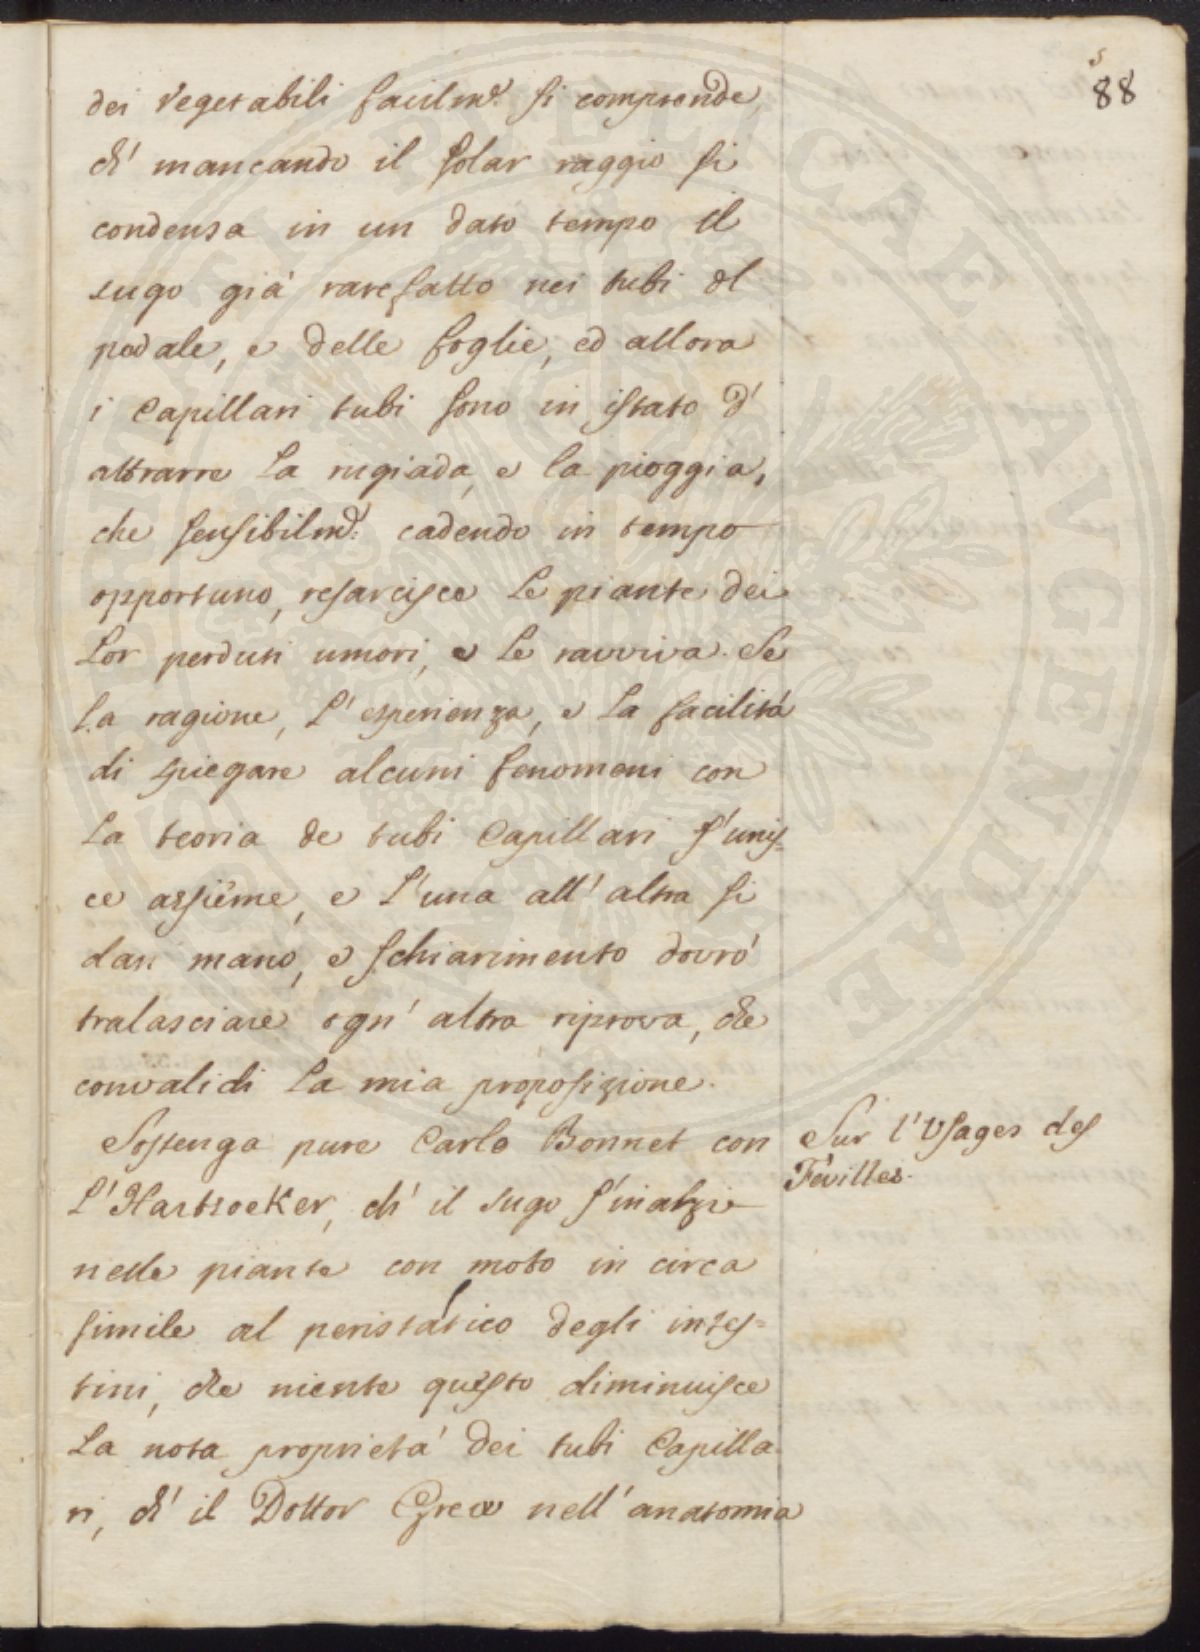 5
88
dei Vegetabili facilm.e si comprende,
ch' mancando il solar raggio si
condensa in un dato tempo il
sugo già rarefatto nei tubi del
pedale, e delle foglie, ed allora
i Capillari tubi sono in istato d'
attrarre la rugiada, e la pioggia,
che sensibilm.e: cadendo in tempo
opportuno, resarcisce le piante dei
lor perduti umori, e le ravviva. Se
la ragione, l' esperienza, e la facilità
di spiegare alcuni fenomeni con
la teoria de tubi Capillari s'unis-
ce assieme, e l'una all' altra si
dan mano, e schiarimento dovrò
tralasciare ogn' altra riprova, che
convalidi la mia proposizione.
Sostenga pure Carlo Bonnet con
l'Hartsoeker, ch' il sugo s'inalzi
nelle piante con moto in circa
simile al peristaltico degli intes-
tini, che niente questo diminuisce
la nota proprietà dei tubi Capilla-
ri, ch' il Dottor Grew nell' anatomia
Sur l'Usages des
Feuilles.
PUBLICAE AVGENDAE